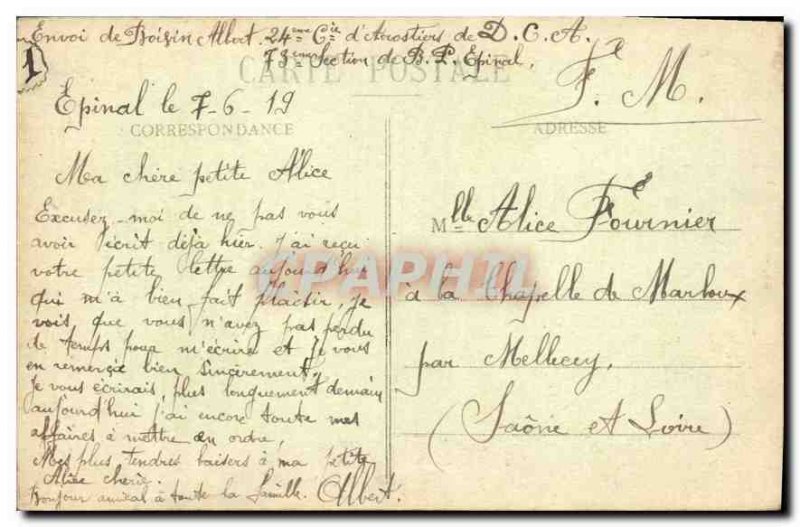 Envoi de Boisin Albert. 24eme Cie d'Aérostiers de D. C. A.
73eme Section de B. P. Epinal,
1
CARTE POSTALE
F. M.
Epinal le 7-6-19
CORRESPONDANCE
ADRESSE
Ma chère petite Alice
Excusez-moi de ne pas vous
avoir écrit déjà hier. J'ai reçu
votre petite lettre aujourd'hui
qui m'à bien fait plaisir, je
vois que vous n'avez pas perdu
de temps pour m'écrire et je vous
en remercie bien sincèrement,
Je vous écrirais, plus longuement demain
aujourd'hui j'ai encore toute mes
affaires à mettre en ordre,
Mes plus tendres baisers à ma petite
Alice cherie.
Bonjour amical à toute la famille. Albert.
Mlle Alice Fournier
à la Chapelle de Marloux
par Mellecey,
(Saône et Loire)
CPAPHIL